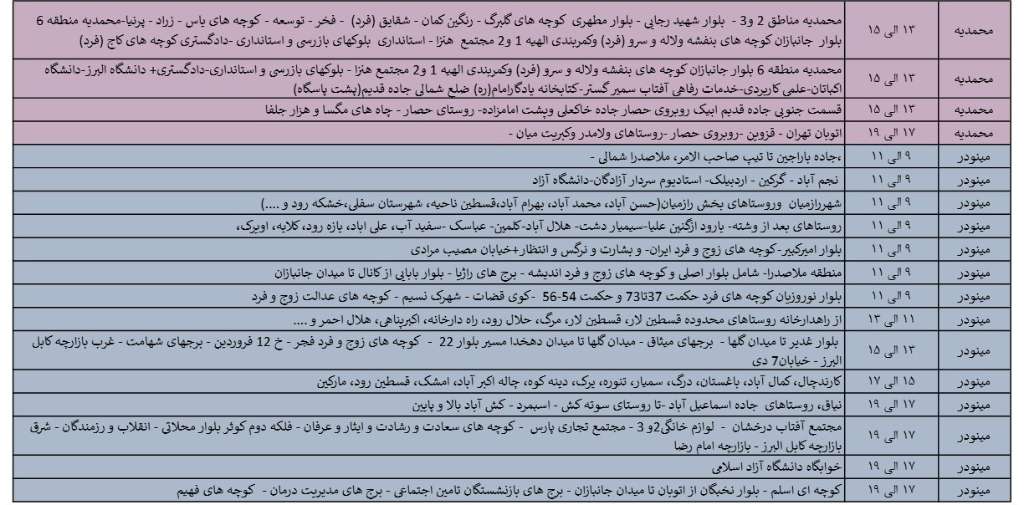 محمدیه ۱۳ الی ۱۵ محمدیه مناطق 2 و3 - بلوار شهید رجایی - بلوار مطهری کوچه های گلبرگ - رنگین کمان - شقایق (فرد) - فخر - توسعه - کوچه های یاس - زراد - پرنیا-محمدیه منطقه 6
بلوار جانبازان کوچه های بنفشه ولاله و سرو (فرد) وکمربندی الهیه 1 و2 مجتمع هنزا - استانداری بلوکهای بازرسی و استانداری -دادگستری کوچه های کاج (فرد)
محمدیه ۱۳ الی ۱۵ محمدیه منطقه 6 بلوار جانبازان کوچه های بنفشه ولاله و سرو (فرد) وکمربندی الهیه 1 و2 مجتمع هنزا - بلوکهای بازرسی و استانداری-دادگستری+ دانشگاه البرز-دانشگاه
اکباتان-علمی کاربردی-خدمات رفاهی آفتاب سمیر گستر-کتابخانه یادگارامام(ره) ضلع شمالی جاده قدیم(پشت پاسگاه)
محمدیه ۱۳ الی ۱۵ قسمت جنوبی جاده قدیم ابیک روبروی حصار جاده خاکعلی وپشت امامزاده- روستای حصار - چاه های مگسا و هزار جلفا
محمدیه ۱۷ الی ۱۹ اتوبان تهران - قزوین -روبروی حصار -روستاهای ولامدر وکبریت میان -
مینودر ۹ الی ۱۱ ،جاده باراجین تا تیپ صاحب الامر، ملاصدرا شمالی -
مینودر ۹ الی ۱۱ نجم آباد - گرکین - اردبیلک- استادیوم سردار آزادگان-دانشگاه آزاد
مینودر ۹ الی ۱۱ شهررازمیان وروستاهای بخش رازمیان(حسن آباد، محمد آباد، بهرام آباد،قسطین ناحیه، شهرستان سفلی،خشکه رود و ....)
مینودر ۹ الی ۱۱ روستاهای بعد از وشته- بارود ازگنین علیا-سیمیار دشت- هلال آباد-کلمین- عباسک -سفید آب، علی اباد، یازه رود، کلایه، اوپرک،
مینودر ۹ الی ۱۱ بلوار امیرکبیر-کوچه های زوج و فرد ایران- و بشارت و نرگس و انتظار+خیابان مصیب مرادی
مینودر ۹ الی ۱۱ منطقه ملاصدرا- شامل بلوار اصلی و کوچه های زوج و فرد اندیشه - برج های رازیا - بلوار بابایی از کانال تا میدان جانبازان
مینودر ۹ الی ۱۱ بلوار نوروزیان کوچه های فرد حکمت 37تا73 و حکمت 54-56 -کوی قضات - شهرک نسیم - کوچه های عدالت زوج و فرد
مینودر ۱۱ الی ۱۳ از راهدارخانه روستاهای محدوده قسطین لار، قسطین لار، مرگ، حلال رود، راه دارخانه، اکبرپناهی، هلال احمر و ....
مینودر ۱۳ الی ۱۵ بلوار غدیر تا میدان گلها - برجهای میثاق - میدان گلها تا میدان دهخدا مسیر بلوار 22 - کوچه های زوج و فرد فجر - خ 12 فروردین - برجهای شهامت - غرب بازارچه کابل
البرز - خیابان7 دی
مینودر ۱۵ الی ۱۷ کارندچال، کمال آباد، باغستان، درگ، سمیار، تنوره، یرک، دینه کوه، چاله اکبر آباد، امشک، قسطین رود، مارکین
مینودر ۱۷ الی ۱۹ نیاق، روستاهای جاده اسماعیل آباد -تا روستای سوته کش - اسبمرد - کش آباد بالا و پایین
مینودر ۱۷ الی ۱۹ مجتمع آفتاب درخشان - لوازم خانگی2و 3 - مجتمع تجاری پارس - کوچه های سعادت و رشادت و ایثار و عرفان - فلکه دوم کوثر بلوار محلاتی - انقلاب و رزمندگان - شرق
بازارچه کابل البرز - بازارچه امام رضا
مینودر ۱۷ الی ۱۹ خوابگاه دانشگاه آزاد اسلامی
مینودر ۱۷ الی ۱۹ کوچه ای اسلم - بلوار نخبگان از اتوبان تا میدان جانبازان - برج های بازنشستگان تامین اجتماعی - برج های مدیریت درمان - کوچه های فهیم